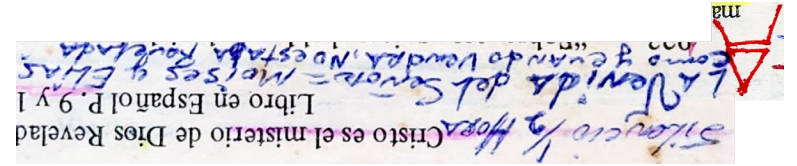 Silencio 1/2 Hora Cristo es el misterio de Dios Revelad
Libro en Español P. 9 y 1
LA Venida del Señor = Moises y Elias
como y cuando Vendra, No, estaba Revelada
ma